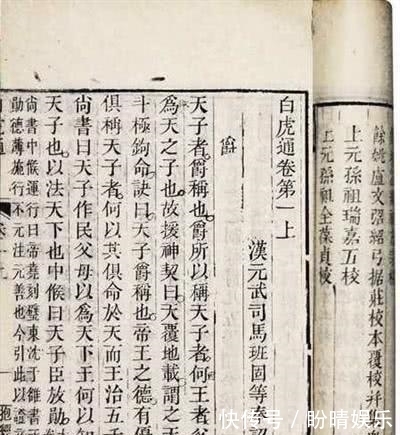 餘姚盧文弨紹弓據莊校本覆校并
上元孫祖瑞嘉五校
上元孫祖全葆貞校
白虎通卷第一上
漢元武司馬班固等奉詔
爵
天子者爵稱也爵所以稱天子者何王
爲天之子也故援神契曰天覆地載謂之天
斗極鉤命訣曰天子爵稱也帝王之德有優
俱稱天子者何以其俱命於天而王治五千
尚書曰天子作民父母以爲天下王何以知
天子也以法天下也中候曰天子臣放勛
尚書中候運行曰帝堯刻璧東沈于雒書曰
勛德薄施行不元注元善也今引此以證
虎通
抱經
快传号 / 盼晴娱乐